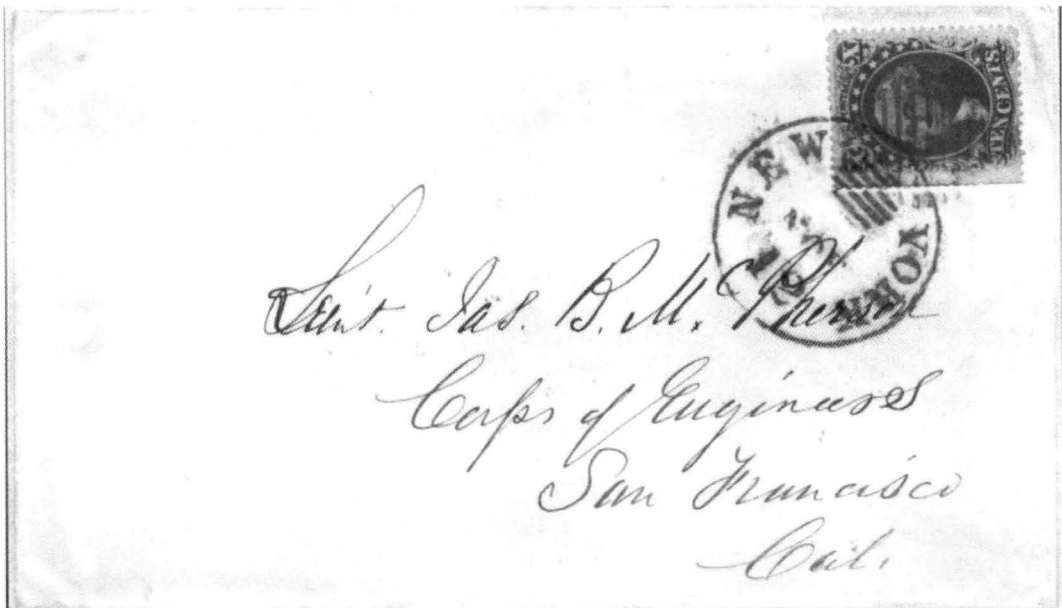 X X
TEN CENTS.
NEW YORK
Lieut. Jas. B. McPherson
Corps of Engineers
San Francisco
Cal.